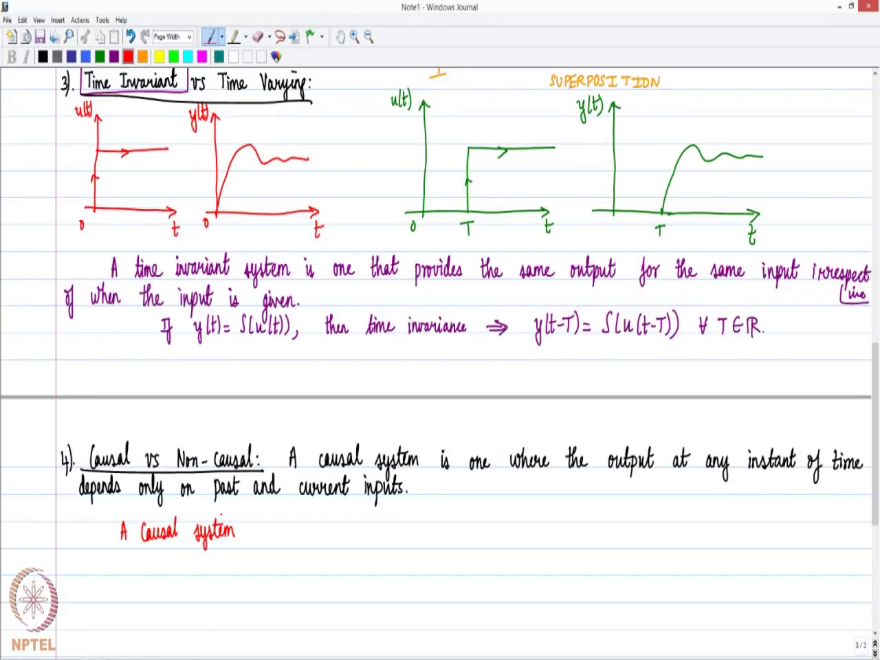 Note1 - Windows Journal
File Edit View Insert Actions Tools Help
Page Width
B I
3). Time Invariant vs Time Varying:
SUPERPOSITION
u(t) y(t) u(t) y(t)
0 t 0 t 0 T t T t
A time invariant system is one that provides the same output for the same input irrespect
ive
of when the input is given.
If y(t) = S(u(t)), then time invariance ⇒ y(t-T) = S(u(t-T)) ∀ T∈ℝ.
4). Causal vs Non-causal: A causal system is one where the output at any instant of time
depends only on past and current inputs.
A causal system
NPTEL
3 / 3